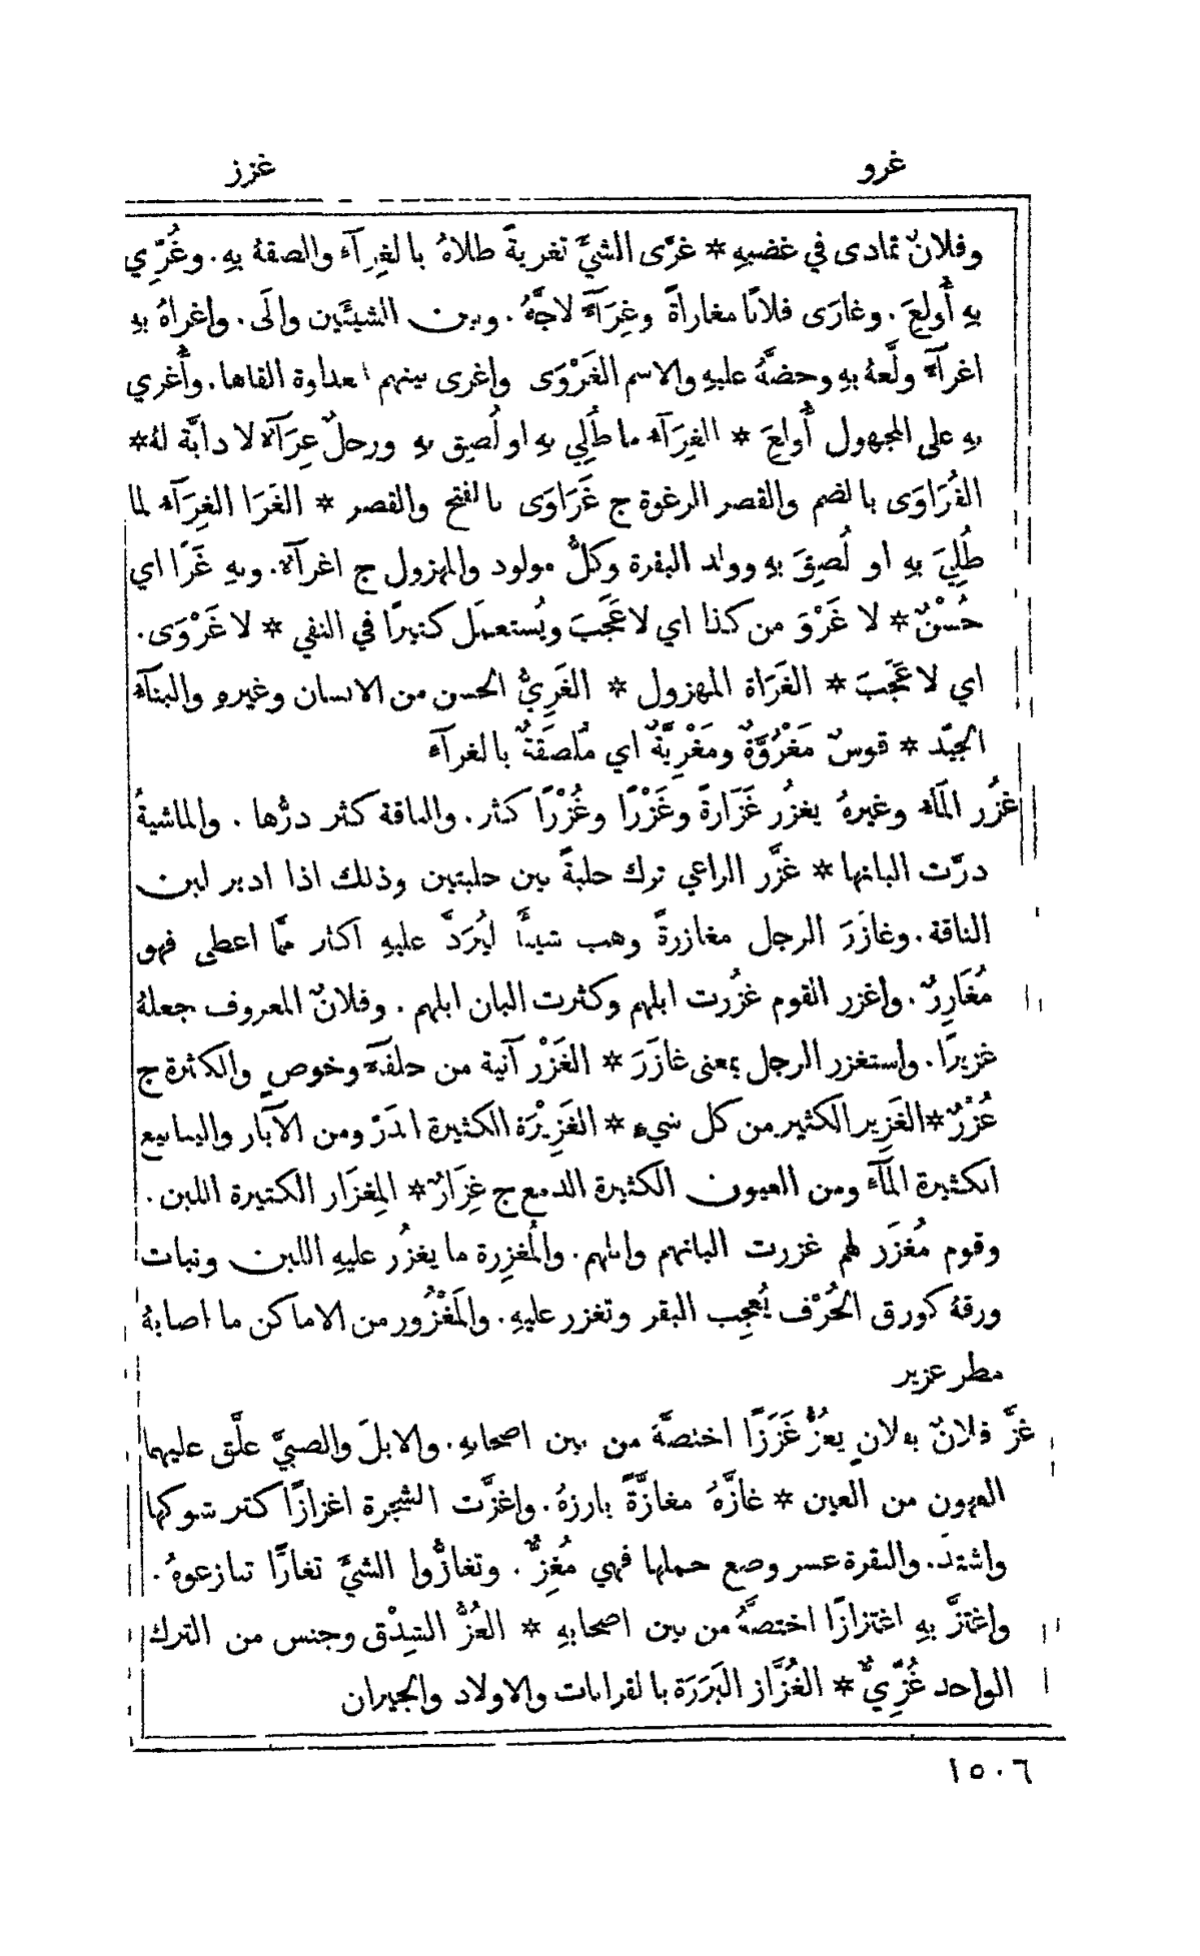 غرو
غزز
وفلانٌ تمادى في غضبهِ * غرَّى الشيَّ تغريةً طلاهُ بالغِرآء والصقهُ بهِ. وغُرِّي
بهِ أُولعَ. وغارَى فلانًا مغاراةً وغِرَآءً لاجَّهُ. وبين الشيئَين والَى. واغراهُ بهِ
اغرآءً ولَّعهُ بهِ وحضَّهُ عليهِ والاسم الغَرْوَى واغرى بينهم العداوة القاها. وأُغري
بهِ على المجهول أُولعَ * الغِرَآء ما طُلي بهِ او لُصق بهِ ورجلٌ غِرَآء لا دابَّة لهُ*
الغُرَاوَى بالضم والقصر الرغوة ج غَرَاوَى بالفتح والقصر * الغَرَا الغِرَآء لما
طُلِيَ بهِ او لُصِقَ بهِ وولد البقرة وكلُّ مولود والمهزول ج اغرآء. وبهِ غَرًا اي
حُسْنٌ* لا غَرْوَ من كذا اي لا عَجَبَ ويُستعمَل كثيرًا في النفي * لا غَرْوَى.
اي لا عَجَبَ * الغَرَاة المهزول * الغَرِيُّ الحسن من الانسان وغيرهِ والبنآء
الجيّد * قوسٌ مَغْرُوَّةٌ ومَغْرِيَّةٌ اي مُلصَقةٌ بالغرآء
غزُر المَآء وغيرهُ يغزُر غَزَارةً وغَزْرًا وغُزْرًا كثر. والناقة كثر درُّها. والماشيةُ
درَّت البانها * غزَّر الراعي ترك حلبةً بين حلبتين وذلك اذا ادبر لبن
الناقة. وغازَرَ الرجل مغازرةً وهب شيئًا ليُرَدَّ عليهِ اكثر ممَّا اعطى فهو
مُغَازِرٌ. واغزر القوم غزُرت ابلهم وكثرت البان ابلهم. وفلانٌ المعروف جعلهُ
غزيرًا. واستغزر الرجل بمعنى غازَرَ * الغَزْر آنية من حلفَآء وخوصٍ والكثرة ج
غُزْرٌ*الغَزِير الكثير من كل شيءٍ * الغَزِيْرَة الكثيرة الدَرّ ومن الآبار والينابيع
الكثيرة المَآء ومن العيون الكثيرة الدمع ج غِزَارٌ* المِغزَار الكثيرة اللبن.
وقوم مُغزَر لهم غزرت البانهم وابلهم. والمُغزِرة ما يغزُر عليهِ اللبن ونبات
ورقهُ كورق الحُرْف يُعجِب البقر وتغزر عليهِ. والمَغْزُور من الاماكن ما اصابهُ
مطر غزير
غزَّ فلانٌ بفلانٍ يغزُّ غَزَزًا اختصَّهُ من بين اصحابهِ. والابلَ والصبيَّ علَّق عليهما
العهون من العين * غازَّهُ مغازَّةً بارزهُ. واغزَّت الشجرة اغزازًا كثر شوكها
واشتدَّ. والبقرة عسر وضع حملها فهي مُغِزٌّ. وتغازُّوا الشيَّ تغازًّا تنازعوهُ.
واغتزَّ بهِ اغتزازًا اختصَّهُ من بين اصحابهِ * الغُزُّ الشِدْق وجنس من الترك
الواحد غُزِّيٌّ * الغُزَّاز البَرَرَة بالقرابات والاولاد والجيران
١٥٠٦